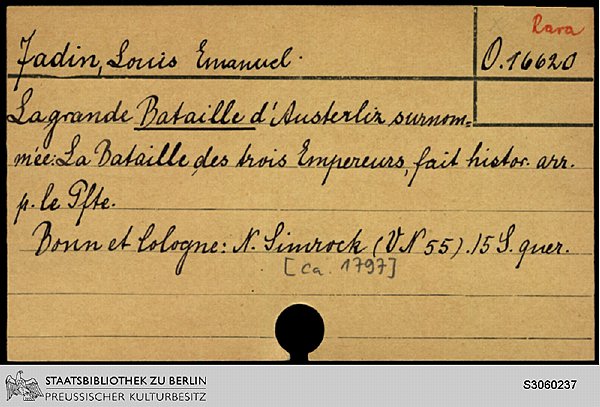 Rara
Jadin, Louis Emanuel.
O.16620
La grande Bataille d'Austerliz surnom=
mée: La Bataille des trois Empereurs, fait histor. arr.
p. le Pfte.
Bonn et Cologne: N. Simrock (VN 55). 15 S. quer.
[ca. 1797]
STAATSBIBLIOTHEK ZU BERLIN
PREUSSISCHER KULTURBESITZ
S3060237